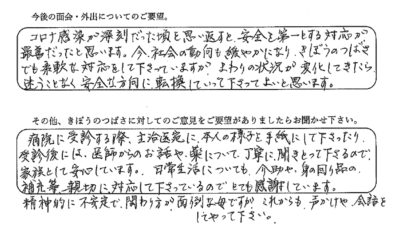 今後の面会・外出についてのご要望。
コロナ感染が深刻だった頃を思い返すと、安全を第一とする対応が
最善だったと思います。今、社会の動向も緩やかになり、きぼうのつばさ
でも柔軟な対応をして下さっていますが、まわりの状況が変化してきたら
迷うことなく安全な方向に転換していって下さってよいと思います。
その他、きぼうのつばさに対してのご意見をご要望がありましたらお聞かせ下さい。
病院に受診する際、主治医宛に、本人の様子を手紙にして下さったり、
受診後には、医師からのお話や、薬について丁寧に聞きとって下さるので、
家族として安心しています。日常生活についても、介助や、身の回り品の
補充等、親切に対応して下さっているのでとても感謝しています。
精神的に不安定で、関わり方が面倒な母ですが、これからも、声かけや、会話を
してやって下さい。